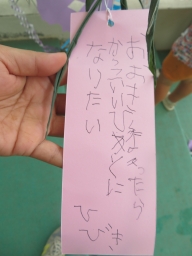 おおきくなったら
かっこいいひとに
なりたい
ひびき